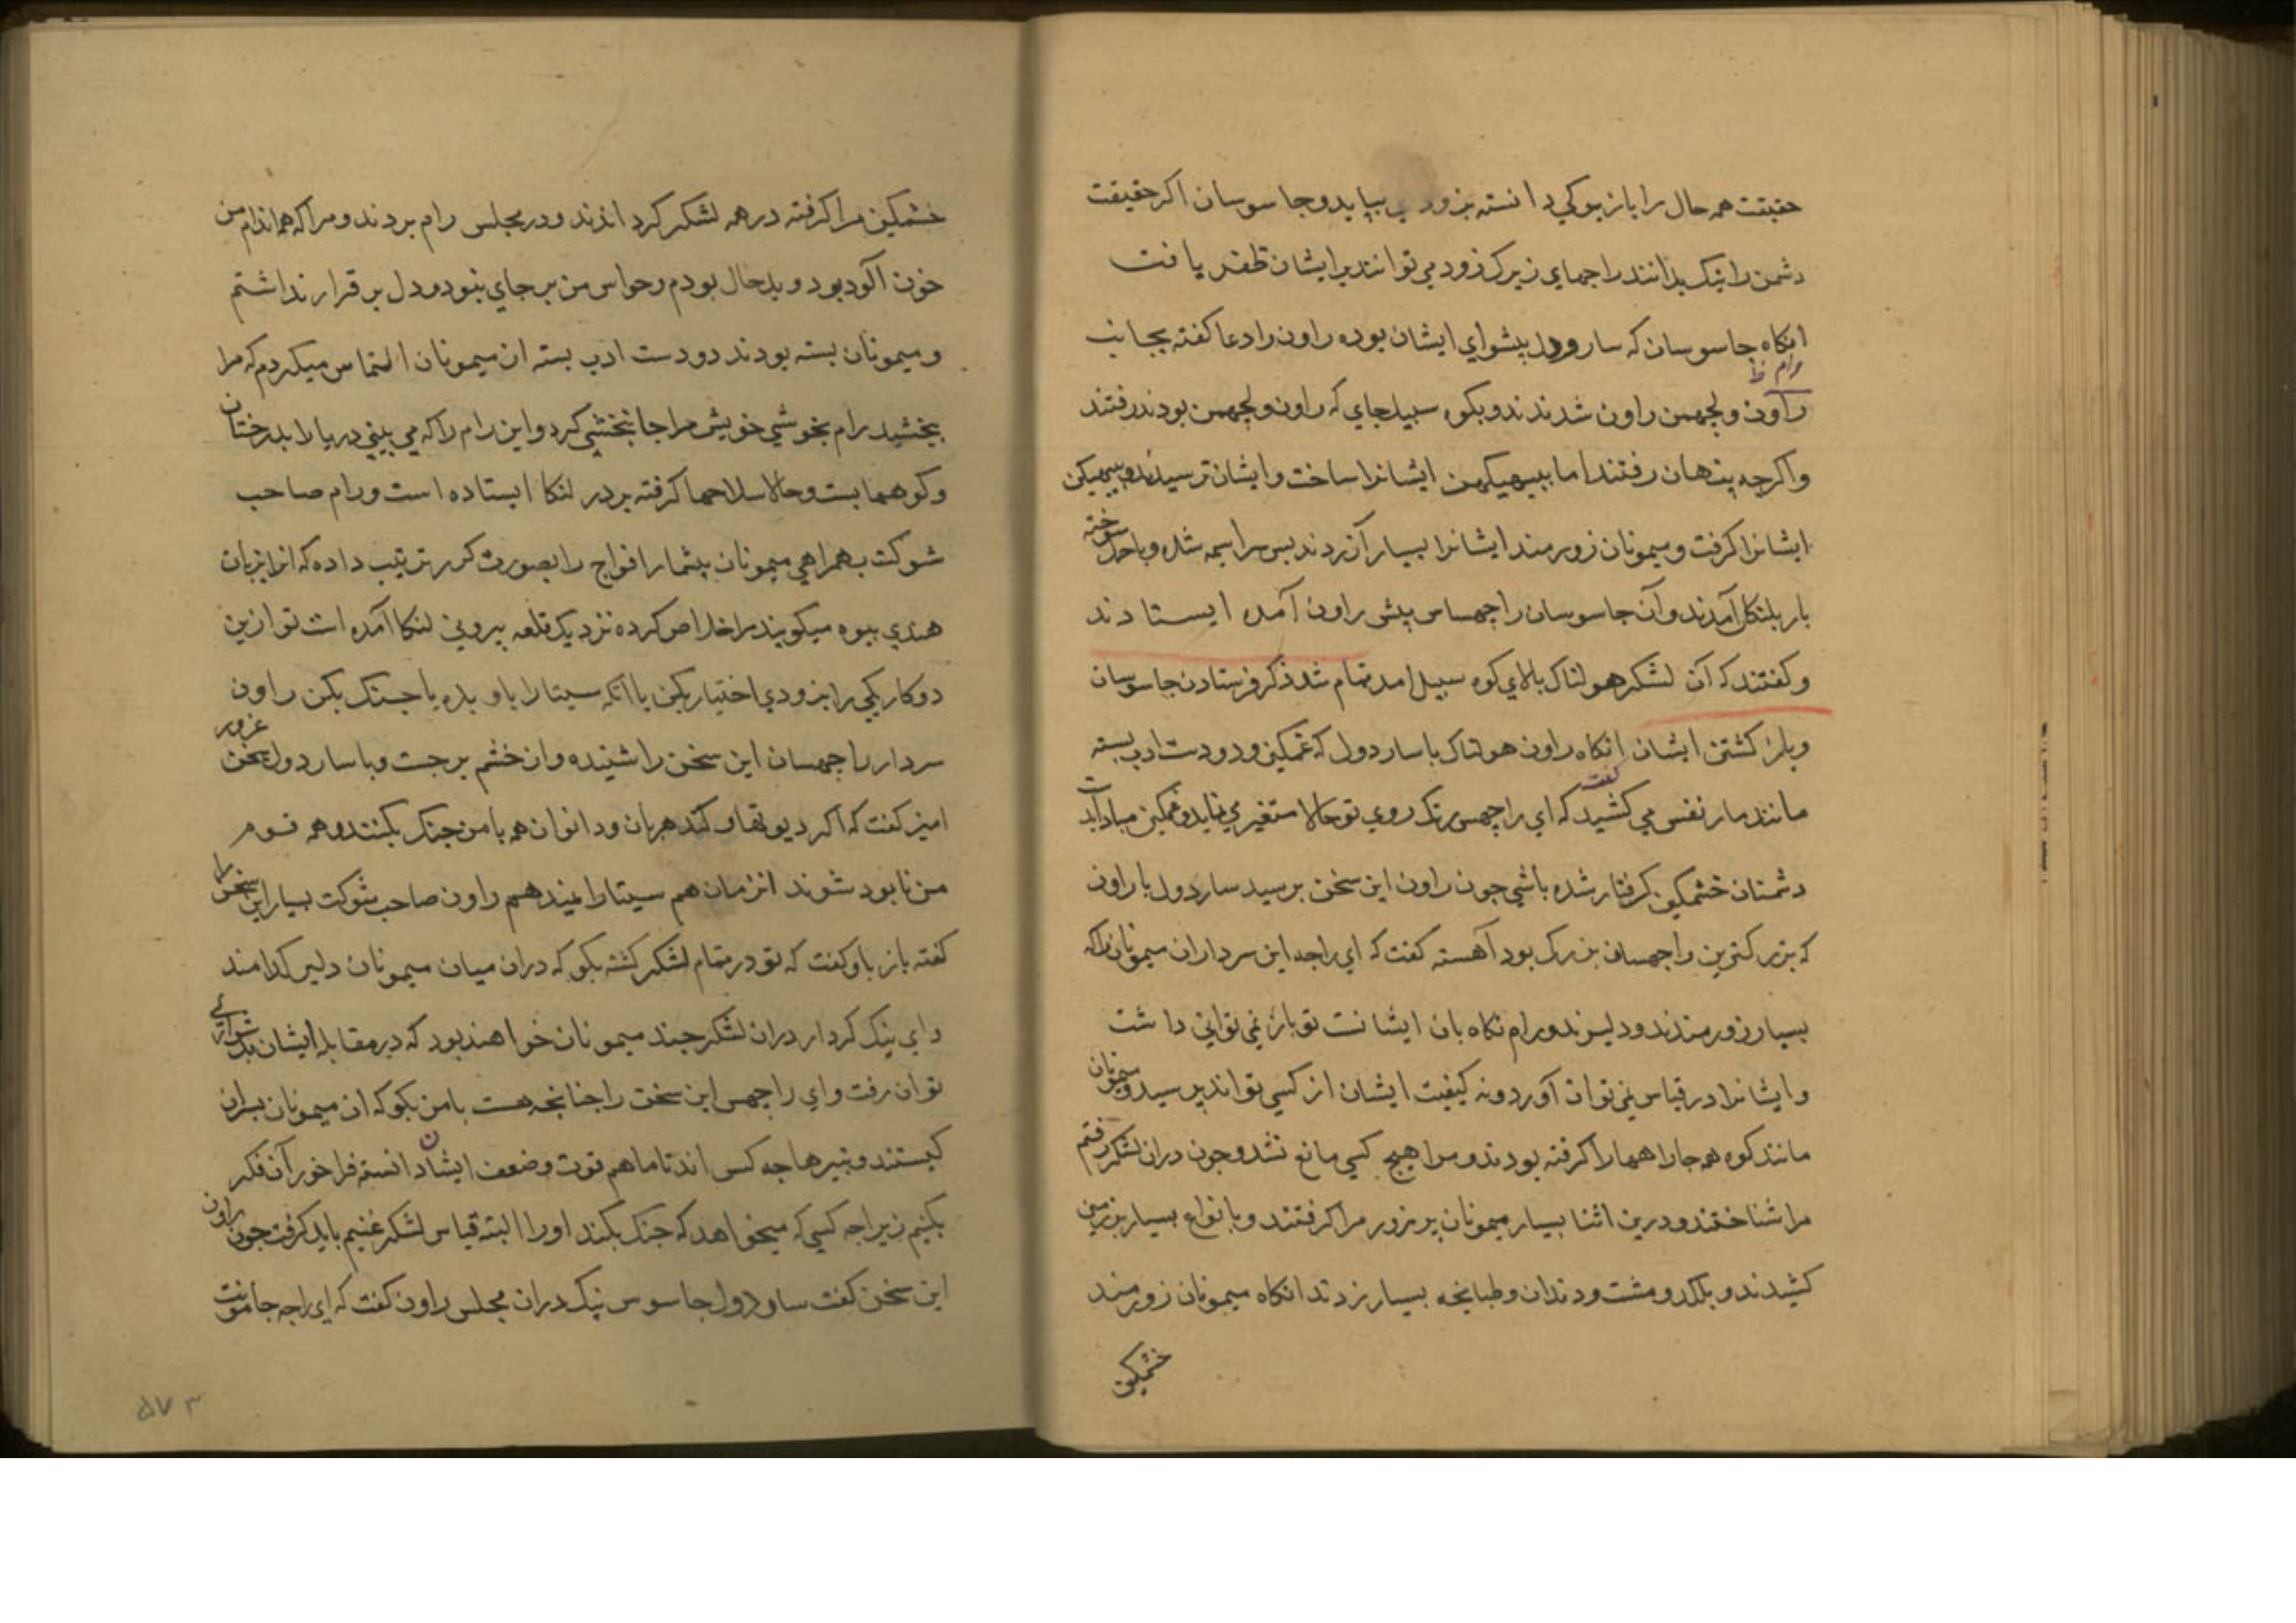 حقیقت همه حال را بازبوکی دانسته بزودی بیایید و جاسوسان اکر حقیقت
دشمن را نیک بدانند راجهای زیرک زود می توانند بر ایشان ظفر یافت
انکاه جاسوسان که ساردول پیشوای ایشان بوده راون را دعا کفته بجانب
رام ظ
راون و لچهمن راون شدند و بکوه سبیل جای که راون و لچهمن بودند رفتند
و اکرچه پنهان رفتند اما ببهیکهن ایشانرا ساخت و ایشان ترسیدند و ببهیکن
ایشانرا کرفت و میمونان زورمند ایشانرا بسیار آزردند پس سراسیمه شده و باحال سوخته
باز بلنکا آمدند و آن جاسوسان راچهساس پیش راون آمده ایستادند
و کفتند که آن لشکر هولناک بالای کوه سبیل امد تمام شد ذکر فرستادن جاسوسان
و باز کشتن ایشان انکاه راون هولناک با ساردول که غمکین و دودست ادب بسته
مانند مار نفس می کشید کفت که ای راچهس رنک روی تو حالا متغیر می نماید و غمکین مباد ابدست
دشمنان خشمکین کرفتار شده باشی چون راون این سخن پرسید ساردول با راون
که بزرکترین راچهسان بزرک بود آهسته کفت که ای راجه این سرداران میمونان را که
بسیار زورمندند و دلیرند و رام نکاه بان ایشانست تو باز نمی توانی داشت
و ایشانرا در قیاس نمی توان آورد و نه کیفیت ایشان از کسی تواند پرسید و میمونان
مانند کوه همه جا راهها را کرفته بودند و مرا هیچ کسی مانع نشد و چون دران لشکر رفتم
مرا شناختند و درین اثنا بسیار میمونان پر زور مرا کرفتند و بانواع بسیار بر زمین
کشیدند و بلکد و مشت و دندان و طبانچه بسیار زدند انکاه میمونان زورمند
خشمکین
خشمکین مرا کرفته در همه لشکر کردانذند و در مجلس رام بردند و مرا که همه اندام من
خون آلود بود و بدحال بودم و حواس من بر جای نبود و دل بر قرار نداشتم
و میمونان بسته بودند دودست ادب بسته از میمونان التماس میکردم که مرا
بخشید رام بخوشی خویش مرا جانبخشی کرد و این رام را که می بینی دریا را بدرختان
و کوهها بست و حالا سلاحها کرفته بر در لنکا ایستاده است و رام صاحب
شوکت بهمراهی میمونان بیشمار افواج را بصورت کرر ترتیب داده که انرا بزبان
هندی بیوه میکویند مرا خلاص کرده نزدیک قلعه بیرونی لنکا آمده است تو ازین
دو کار یکی را بزودی اختیار بکن یا انکه سیتا را باو بده یا جنک بکن راون
سردار راچهسان این سخن را شنیده و از خشم برجست و با ساردول سخن غرور
امیز کفت که اکر دیوتها و کندهربان و دانوان همه با من جنک بکنند و همه قوم
من نابود شوند انزمان هم سیتا را نمیدهم راون صاحب شوکت بسیار این سخن را
کفته باز باو کفت که تو در تمام لشکر کشته بکو که دران میان میمونان دلیر کدامند
و ای نیک کردار دران لشکر چند میمونان خواهند بود که در مقابله ایشان بدشواری
توان رفت و ای راچهس این سخن را چنانچه هست با من بکو که ان میمونان پسران
کیستند و نبیرها چه کس اند تا ما هم قوت و ضعف ایشان دانسته فراخور آن فکر
بکنیم زیرا چه کسی که میخواهد که جنک بکند او را البته قیاس لشکر غنیم باید کرفت چون راون
این سخن کفت ساردول جاسوس نیک دران مجلس راون کفت که ای راجه جامونت
۵۷۳